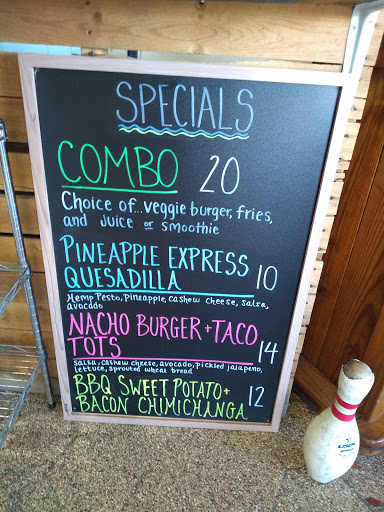 SPECIALS
COMBO 20
Choice of...veggie burger, fries,
and juice or smoothie
PINEAPPLE EXPRESS
QUESADILLA 10
Hemp Pesto, pineapple, cashew cheese, salsa,
avocado
NACHO BURGER + TACO
TOTS 14
salsa, cashew cheese, avocado, pickled jalapeno,
lettuce, sprouted wheat bread
BBQ SWEET POTATO +
BACON CHIMICHANGA 12